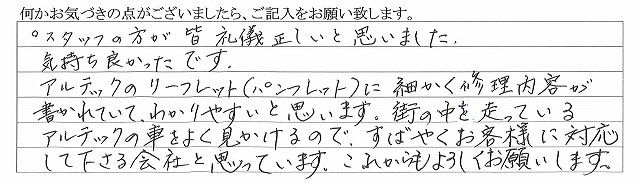 何かお気づきの点がございましたら、ご記入をお願い致します。
○スタッフの方が皆礼儀正しいと思いました.
気持ち良かったです.
アルテックのリーフレット(パンフレット)に細かく修理内容が
書かれていて、わかりやすいと思います。街の中を走っている
アルテックの車をよく見かけるので、すばやくお客様に対応
して下さる会社と思っています。これからもよろしくお願いします。